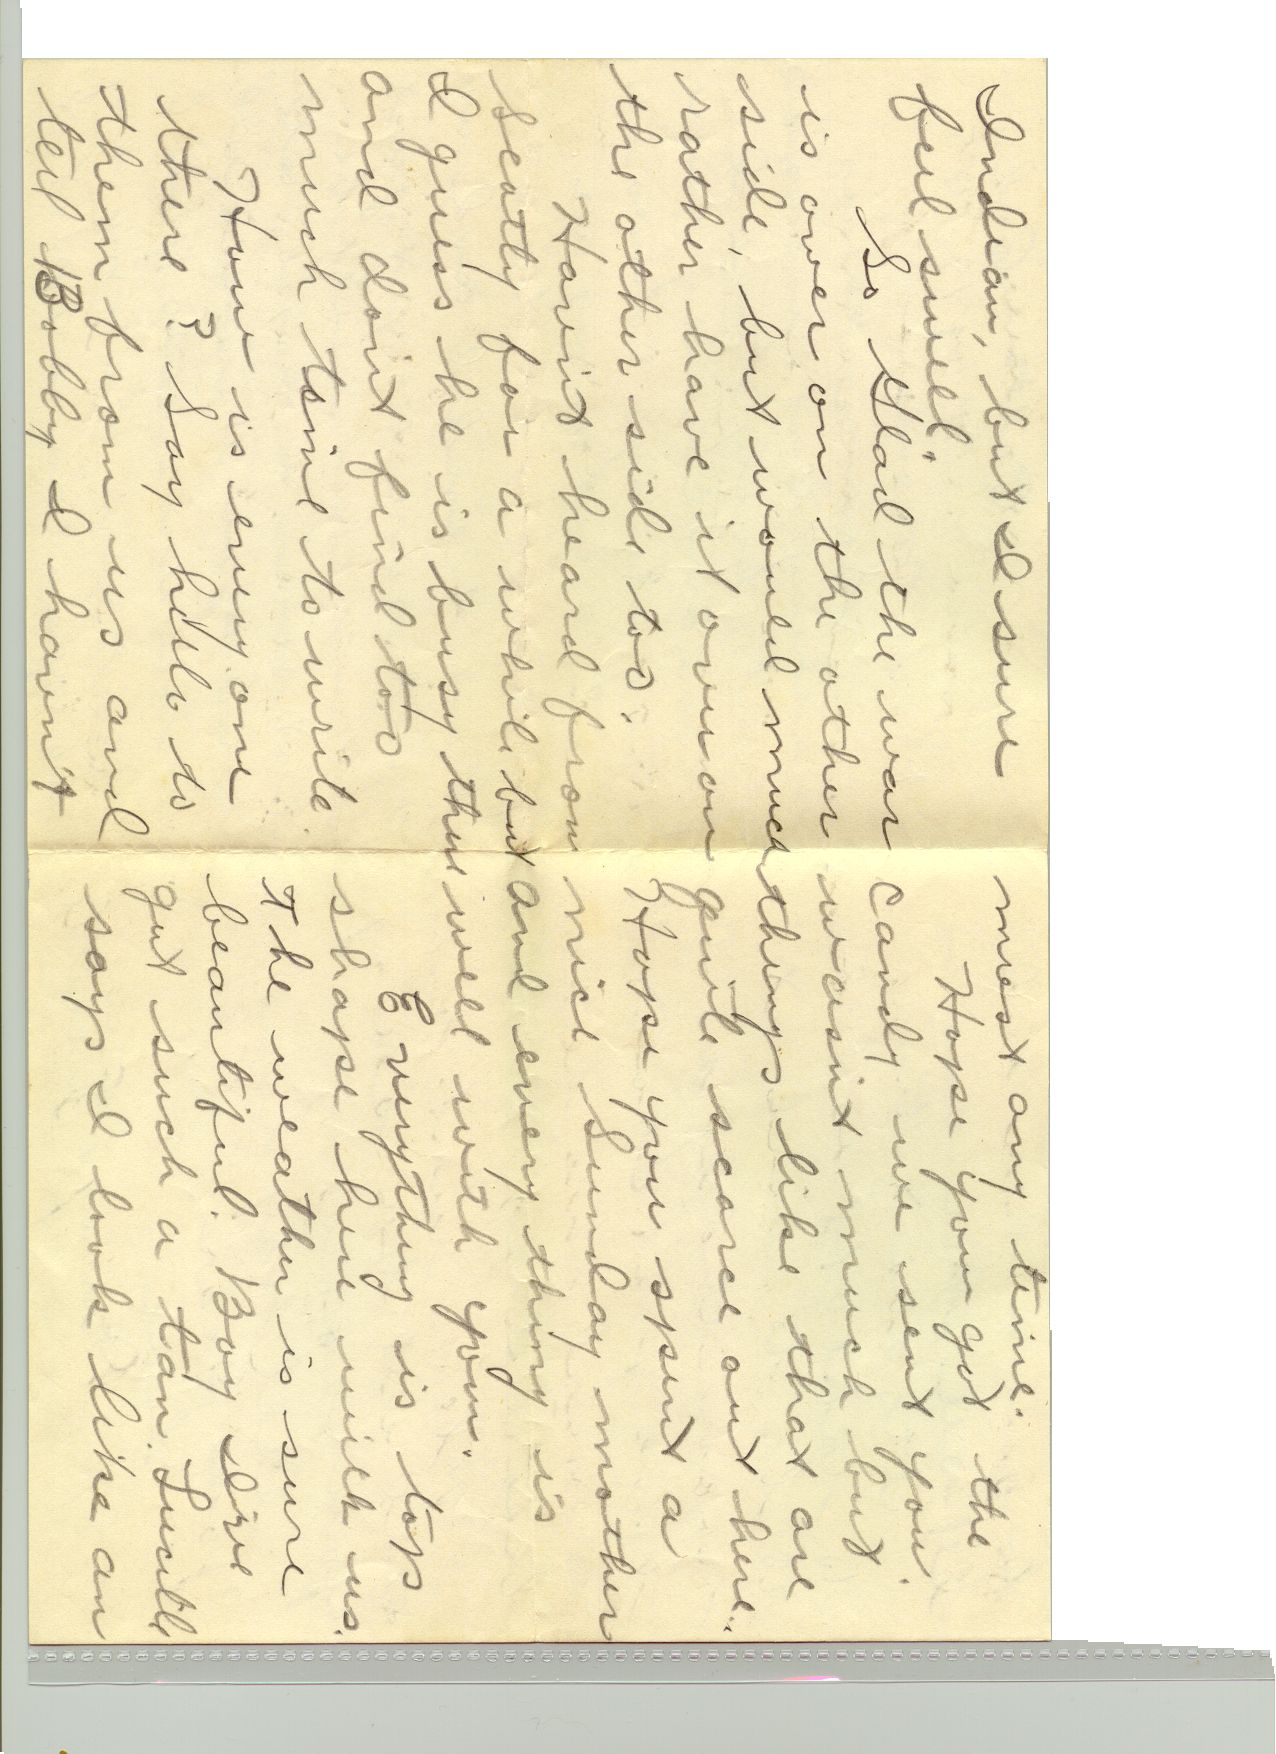 Indian, but I sure
feel swell.
So Glad the war
is over on the other
side, but would much
rather have it over on
the other side too.
Havint heard from
Scotty for a while but
I guess he is busy there
and don't find too
much time to write.
How is every one
there? Say hello to
them from us and
tell Bobby I havin't
mest any time.
Hope you got the
candy we sent you.
wasint much but
things like that are
quite scarce out here.
Hope you spent a
nice Sunday mother
and every thing is
well with you.
Everything is tops
shape here with us.
The weather is sure
beautiful. Boy I've
got such a tan. Lucille
says I look like an